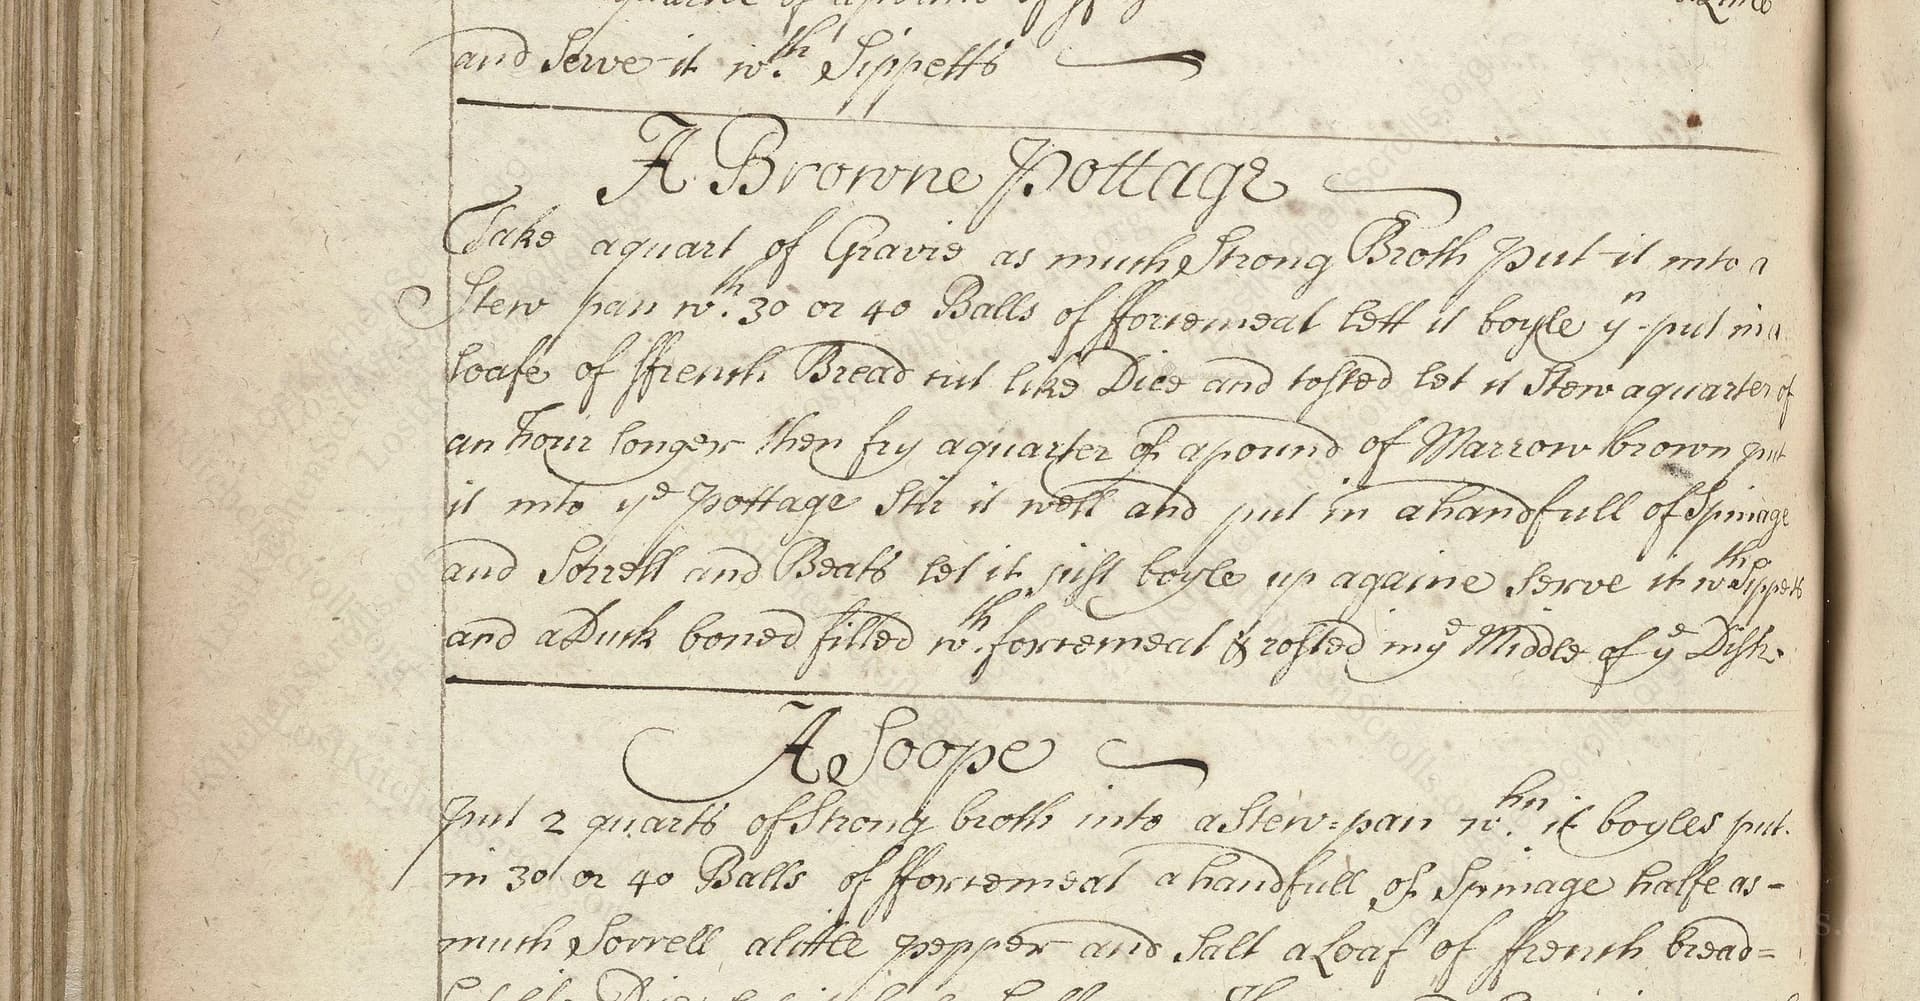 quarter of a pound of
and Serve it wth. Sippetts
A Browne Pottage
Take a quart of Gravie as much Strong Broth put it into a
Stew pan wth. 30 or 40 Balls of fforcemeat lett it boyle yn. put in a
loafe of ffrench Bread cut like Dice and tosted let it Stew a quarter of
an hour longer then fry a quarter of a pound of Marrow brown put
it into ye pottage Stir it well and put in a handfull of Spinage
and Sorrell and Beats let it just boyle up againe Serve it wth Sippets
and a Duck boned filled wth. forcemeat & rosted in ye Middle of ye Dish.
A Soope
put 2 quarts of Strong broth into a Stew=pan whn. it boyles put.
in 30 or 40 Balls of fforcemeat a handfull of Spinage halfe as-
much Sorrell a little pepper and Salt a Loaf of ffrench bread=